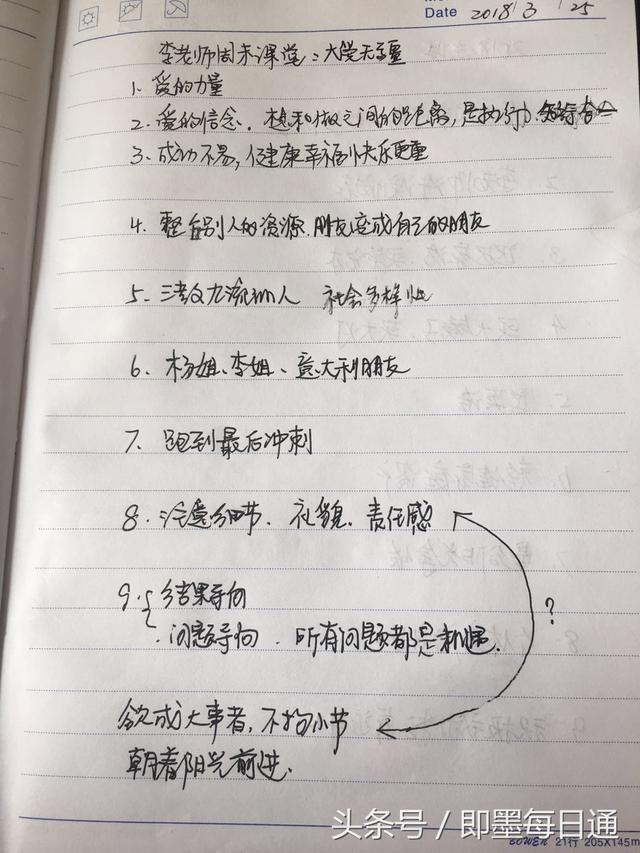 Date 2018 3 25
李老师周末课堂：大学无疆
1. 爱的力量
2. 爱的信念. 想和做之间的距离, 是执行力
3. 成功不易, 健康幸福快乐更重
4. 整合别人的资源. 朋友变成自己的朋友
5. 三教九流的人 社会多样性
6. 杨姐、李姐、意大利朋友
7. 跑到最后冲刺
8. 注意细节、礼貌、责任感
9. 结果导向
问题导向. 所有问题都是机遇.
?
欲成大事者, 不拘小节
朝着阳光前进.
头条号 / 即墨每日通
BOWEN 21行 205X145m